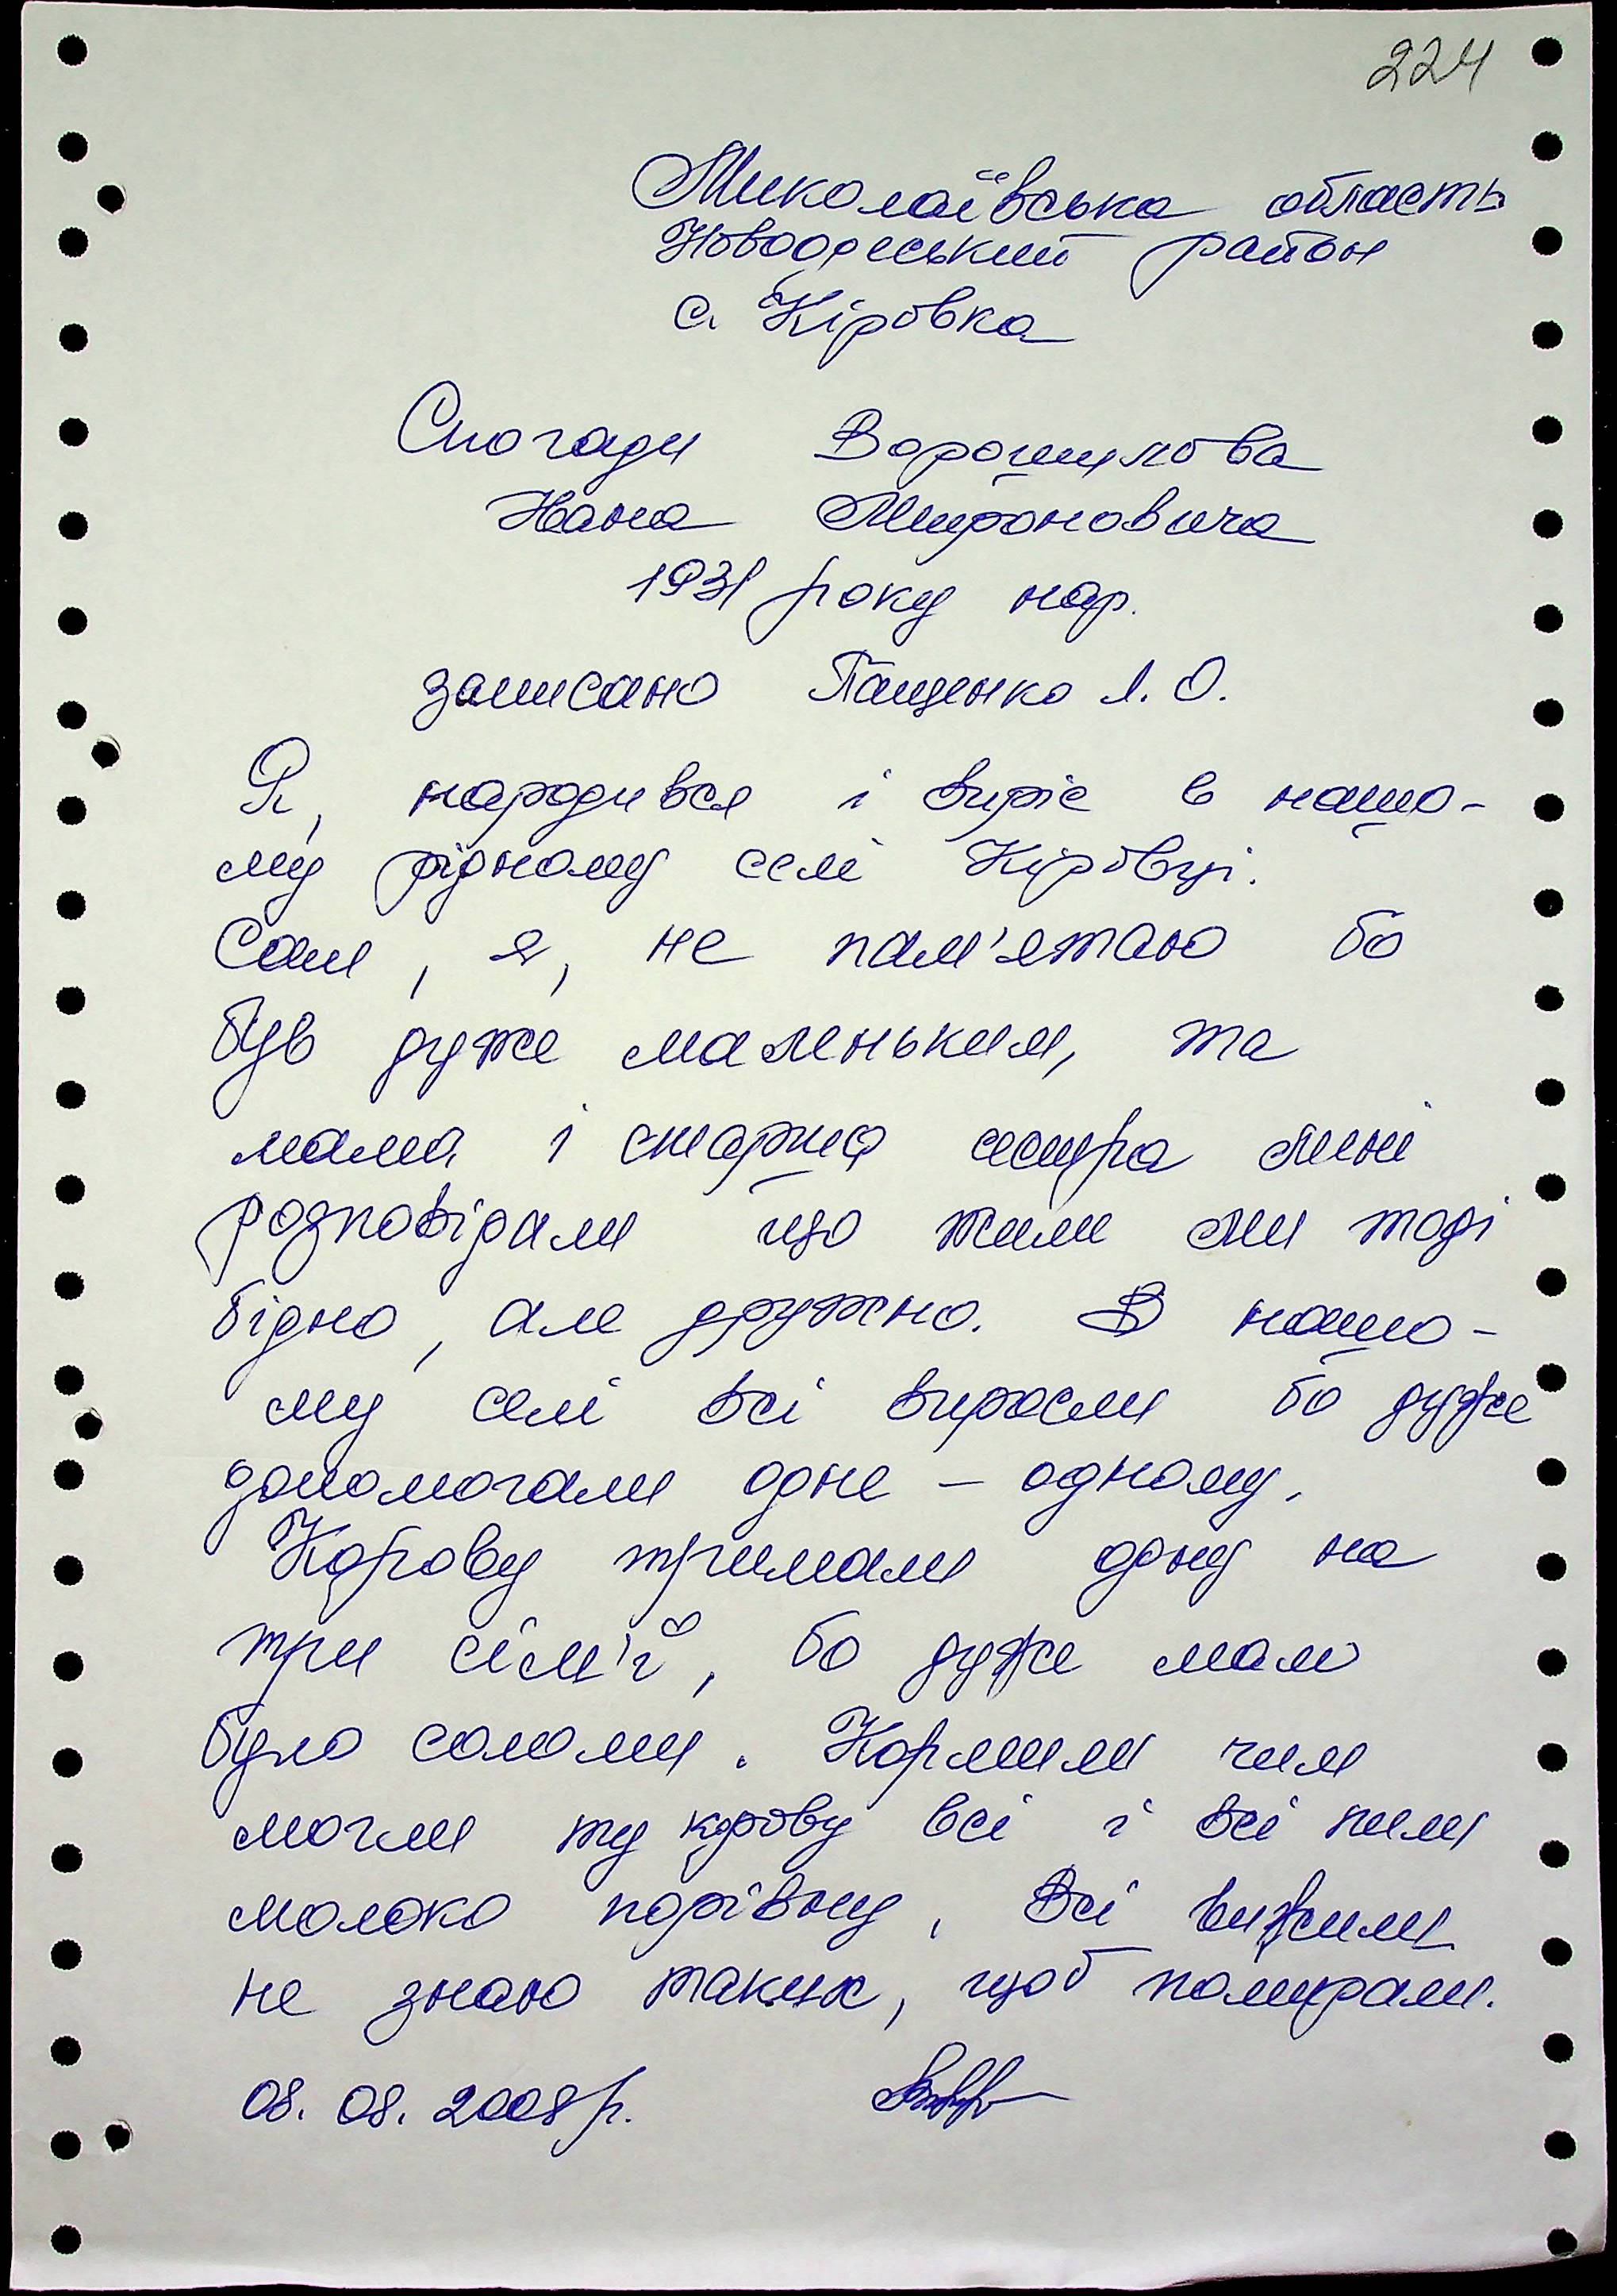 224
Миколаївська область
Новоодеський район
с. Кіровка
Спогади Ворошилова
Івана Мироновича
1931 року нар.
записано Пащенко Л. О.
Я, народився і виріс в нашо-
му рідному селі Кіровці.
Сам, я, не пам'ятаю бо
був дуже маленьким, та
мама і старша сестра мені
розповідали що жили ми тоді
бідно, але дружно. В нашо-
му селі всі виросли бо дуже
допомогали одне - одному.
Корову тримали одну на
три сім'ї, бо дуже мало
було соломи. Кормили чим
могли ту корову всі і всі пили
молоко порівну, Всі вижили
не знаю таких, щоб помирали.
08. 08. 2008 р.